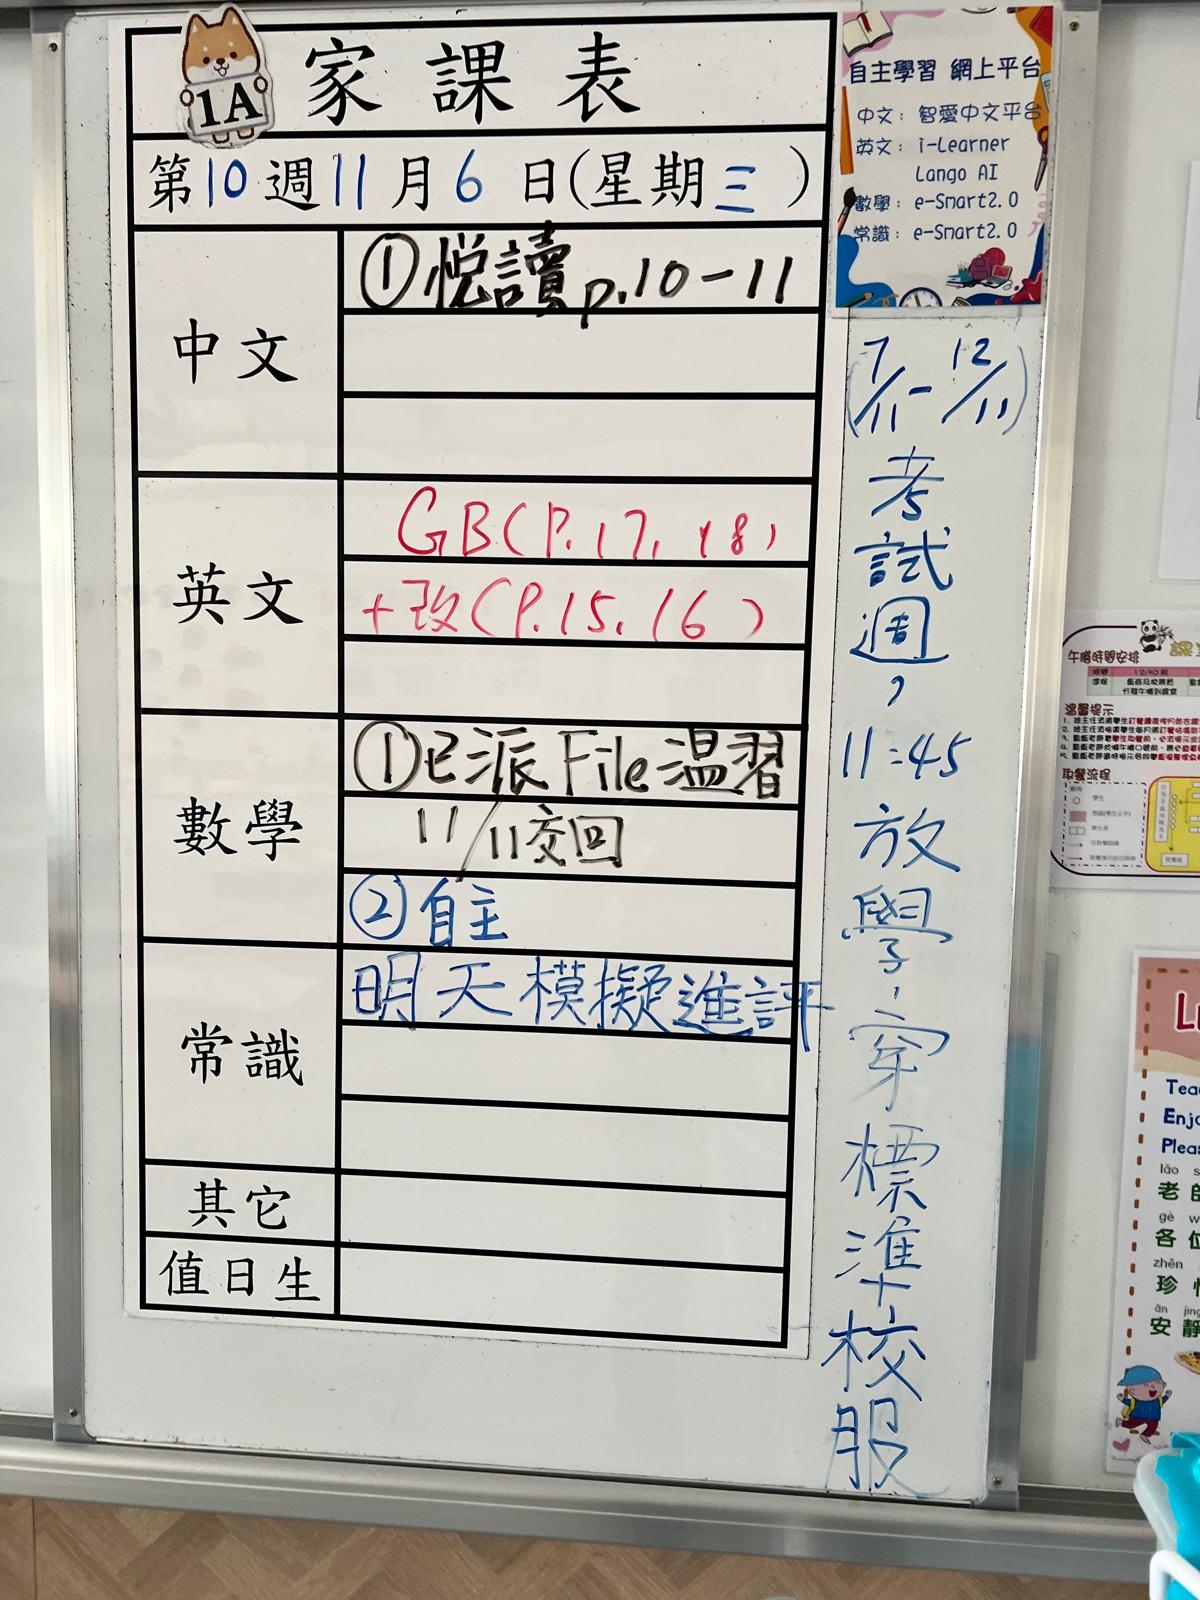 1A
家課表
第10週11月6日(星期三)
中文
①悅讀p.10-11
英文
GB(P.17, 18)
+改(P.15.16)
數學
①已派File溫習
11/11交回
②自主
常識
明天模擬進評
其它
值日生
自主學習 網上平台
中文：智愛中文平台
英文：i-Learner
Lango AI
數學：e-Smart2.0
常識：e-Smart2.0
(7/11-12/11)
考試週，
11:45
放學，穿標準校服
午膳時間安排
溫馨提示
取餐流程
Enj
Pleas
lào
老師
gè
各位
zhēn
珍惜
ān jìng
安靜